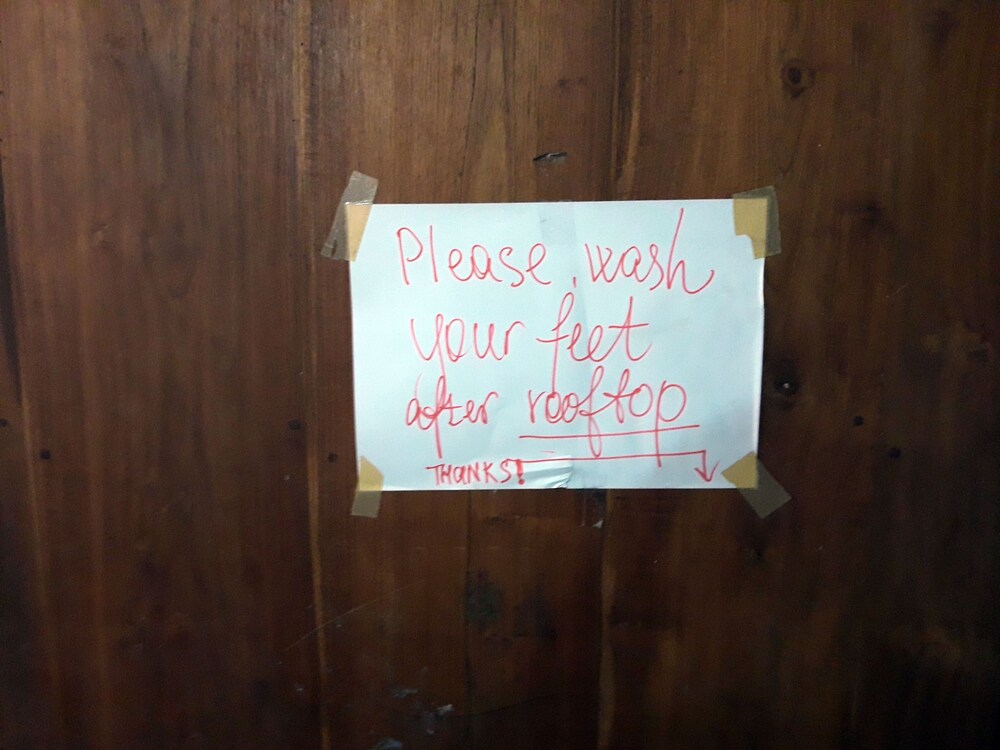 Please, wash
your feet
after rooftop
THANKS!